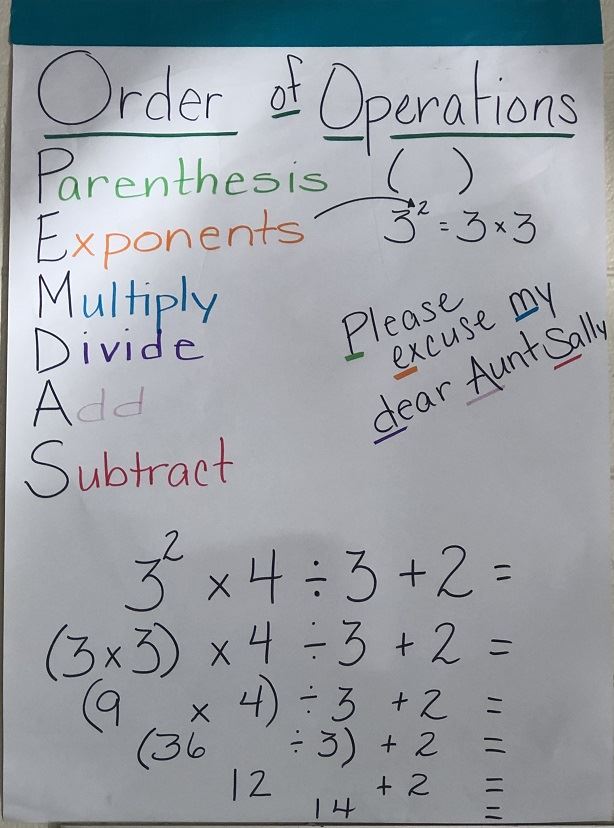 Order of Operations
Parenthesis ( )
Exponents 3² = 3 × 3
Multiply
Divide
Add
Subtract
Please
excuse my
dear Aunt Sally
3² × 4 ÷ 3 + 2 =
(3×3) × 4 ÷ 3 + 2 =
(9 × 4) ÷ 3 + 2 =
(36 ÷ 3) + 2 =
12 + 2 =
14 =